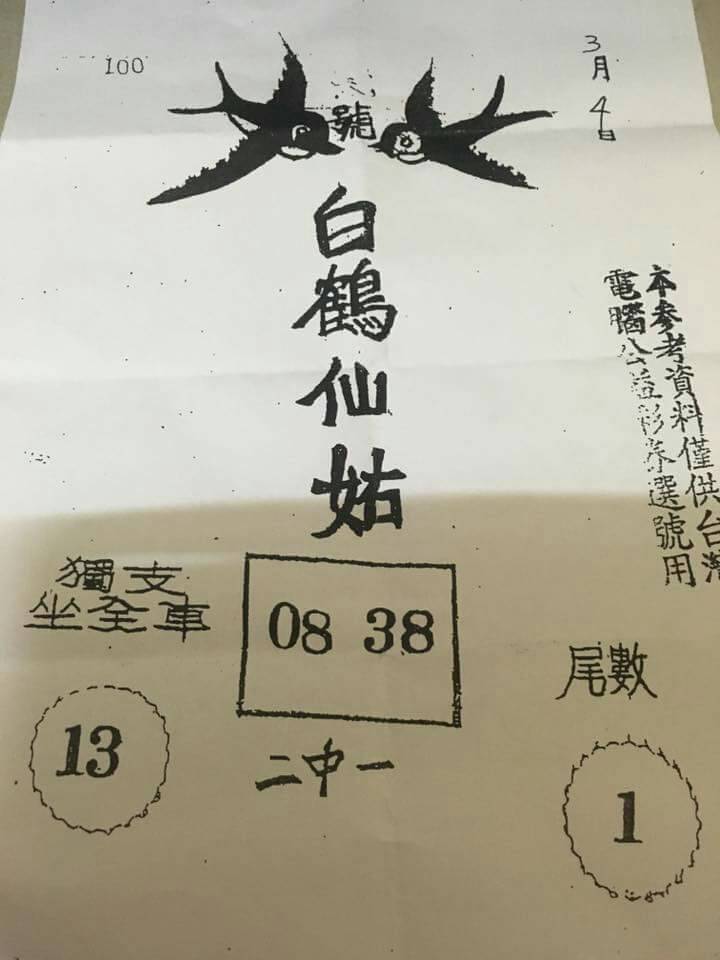 100
3月4日
號
白鶴仙姑
本參考資料僅供台灣
電腦公益彩券選號用
獨支
坐全車
13
08 38
二中一
尾數
1